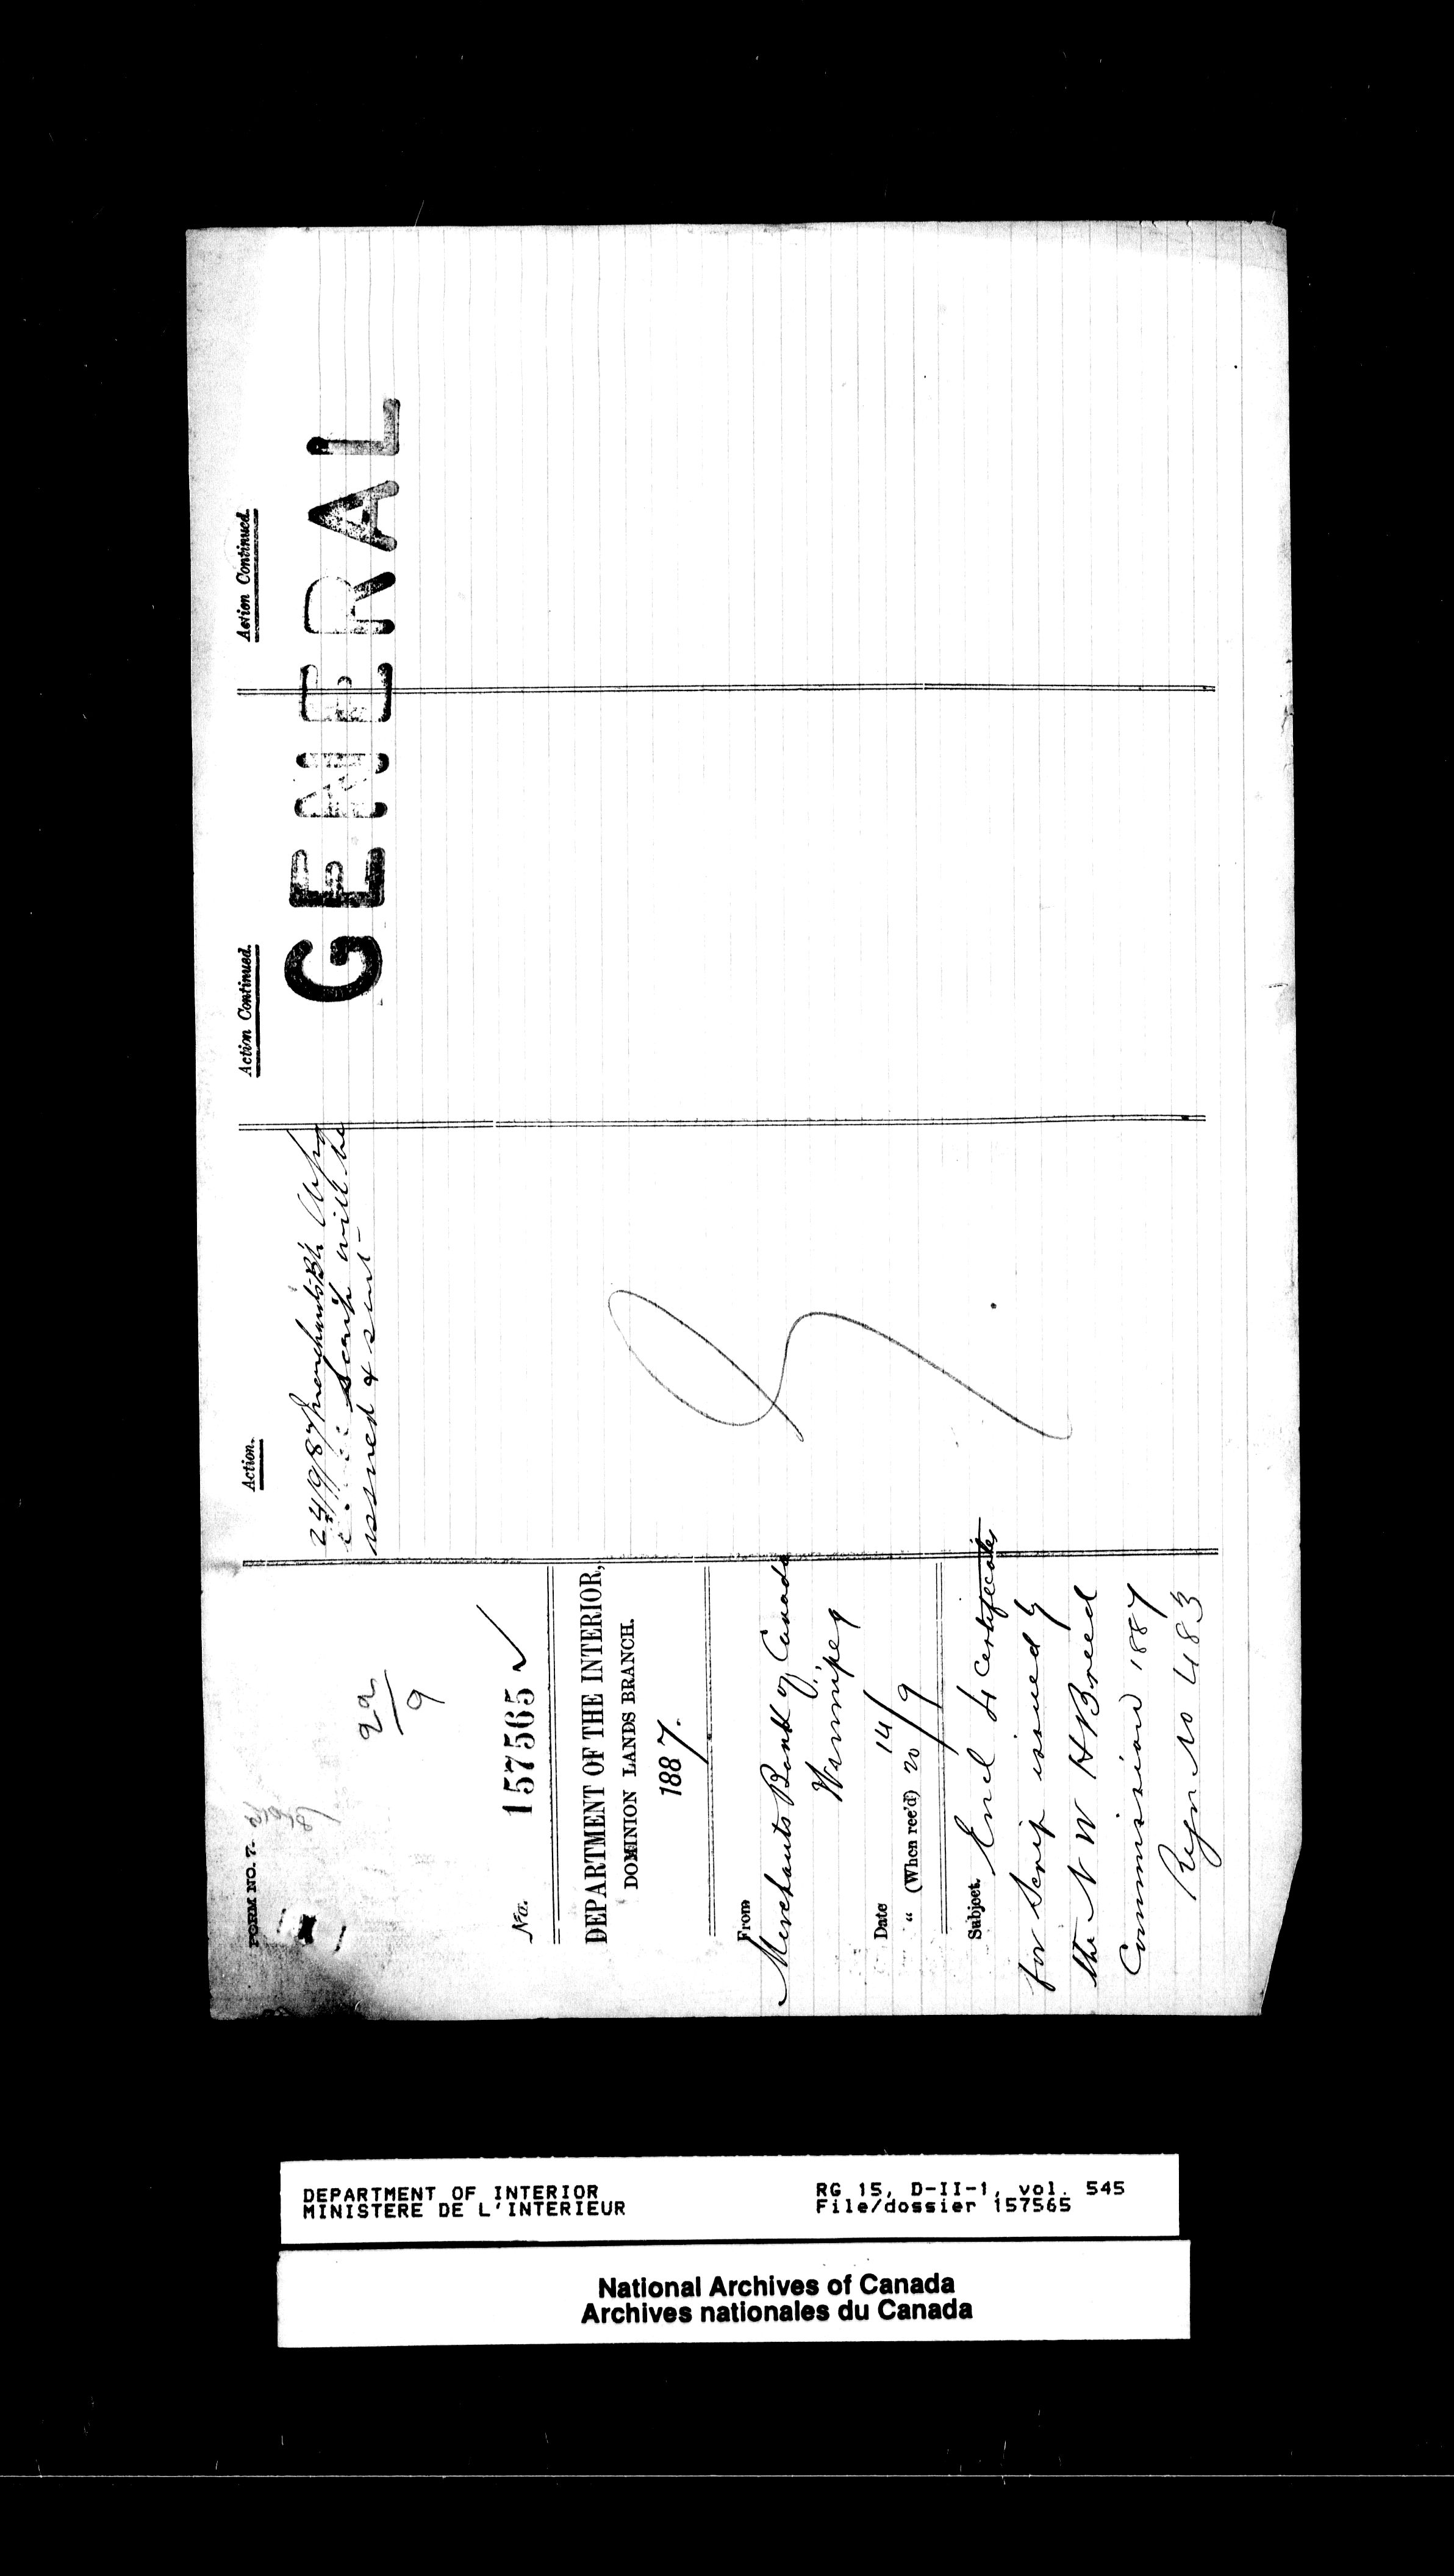 FORM NO. 7.
22/9
No. 157565 ✓
DEPARTMENT OF THE INTERIOR,
DOMINION LANDS BRANCH.
1887.
From
Merchants Bank of Canada
Winnipeg
Date 14/9
" (When rec'd) 20/9
Subject. Encl 4 Certificates
for Scrip issued by
the N W H Breed
Commission 1887
Regn No 483
Action.
24/9/87 Merchants Bk Wpg
scrip will be
issued & sent
Action Continued.
Action Continued.
GENERAL
DEPARTMENT OF INTERIOR
MINISTERE DE L'INTERIEUR
RG 15, D-II-1, vol. 545
File/dossier 157565
National Archives of Canada
Archives nationales du Canada